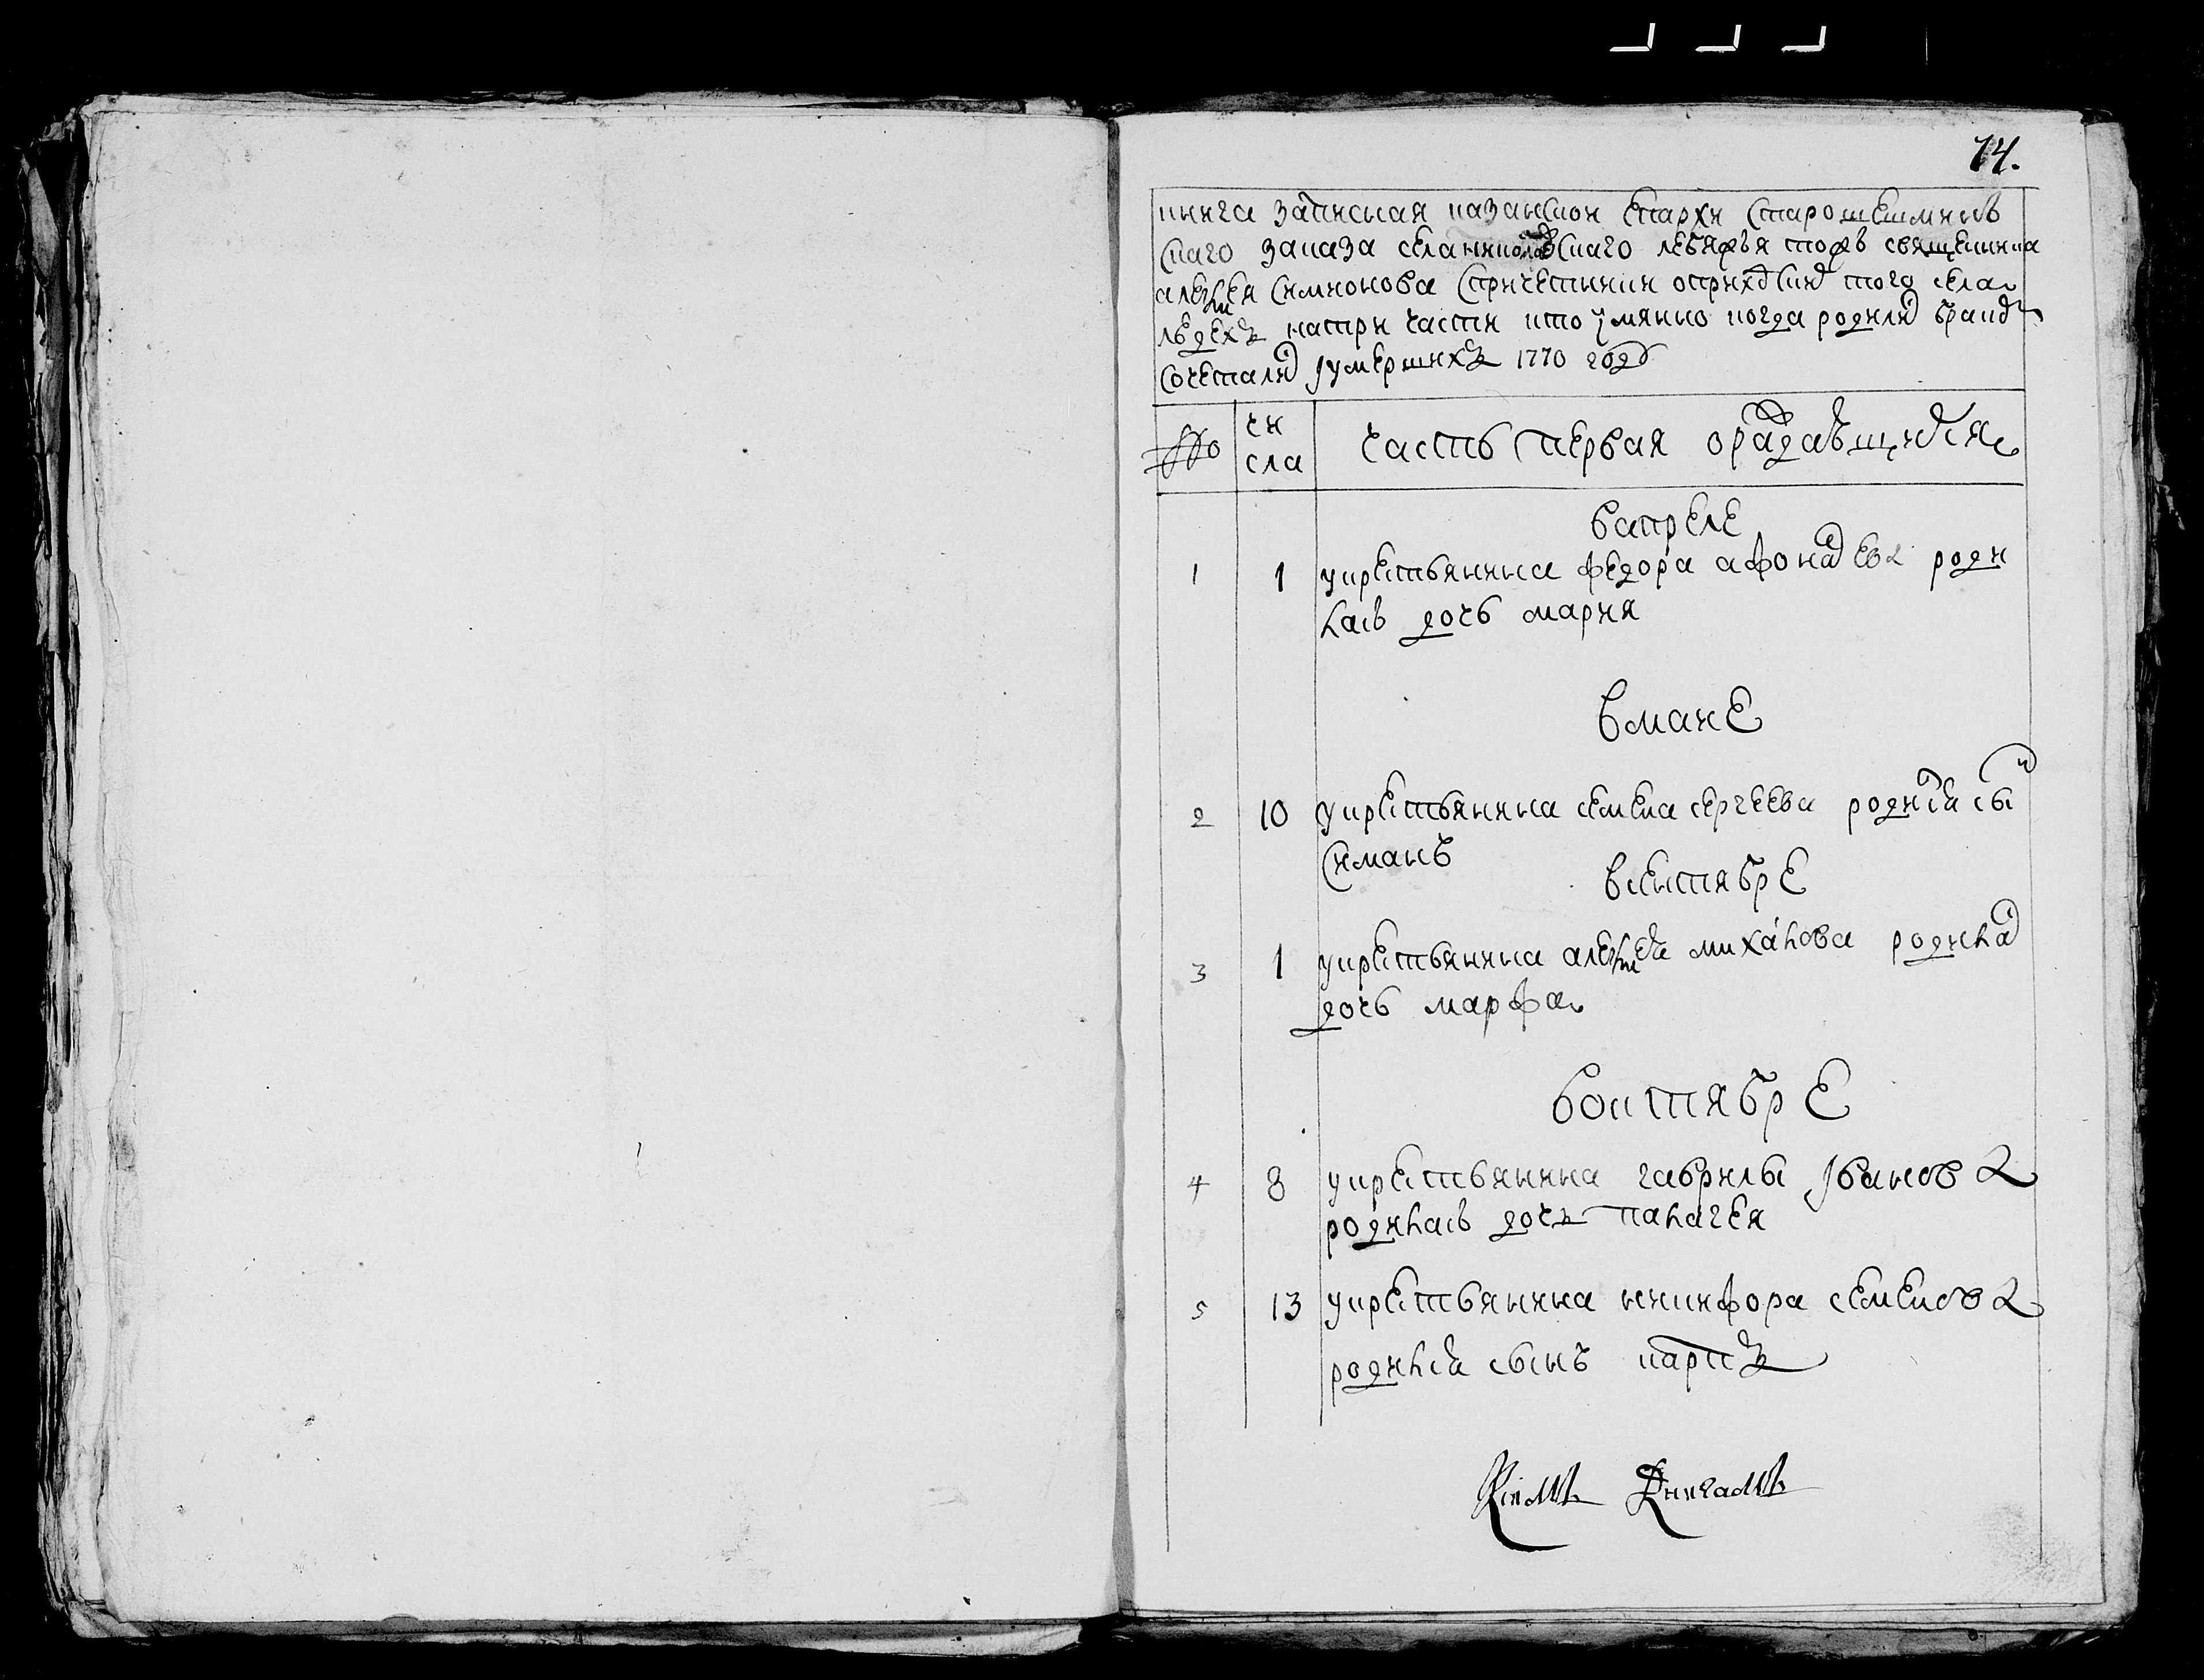 14.
книга записная казанской епархи старошешминъ
скаго заказа села николскаго лебяжья тожъ священника
алексея симионова спричетники оприходских того села
людехъ натри части кто имянно когда родился бракомъ
сочетался ѵумершихъ 1770 году
№ чи
сла
часть первая ораждавшихся
вапреле
1 1 украстьянина федора афонасева роди
лась дочь мария
вмаие
2 10 украстьянина семена сергеева родился сынъ
симанъ
всентябре
3 1 украстьянина алексея михалова родилась
дочь марфа
воктябре
4 8 украстьянина гаврилы ѵванова
родилась дочь палагея
5 13 украстьянина никифора семенова
родился сынъ карпъ